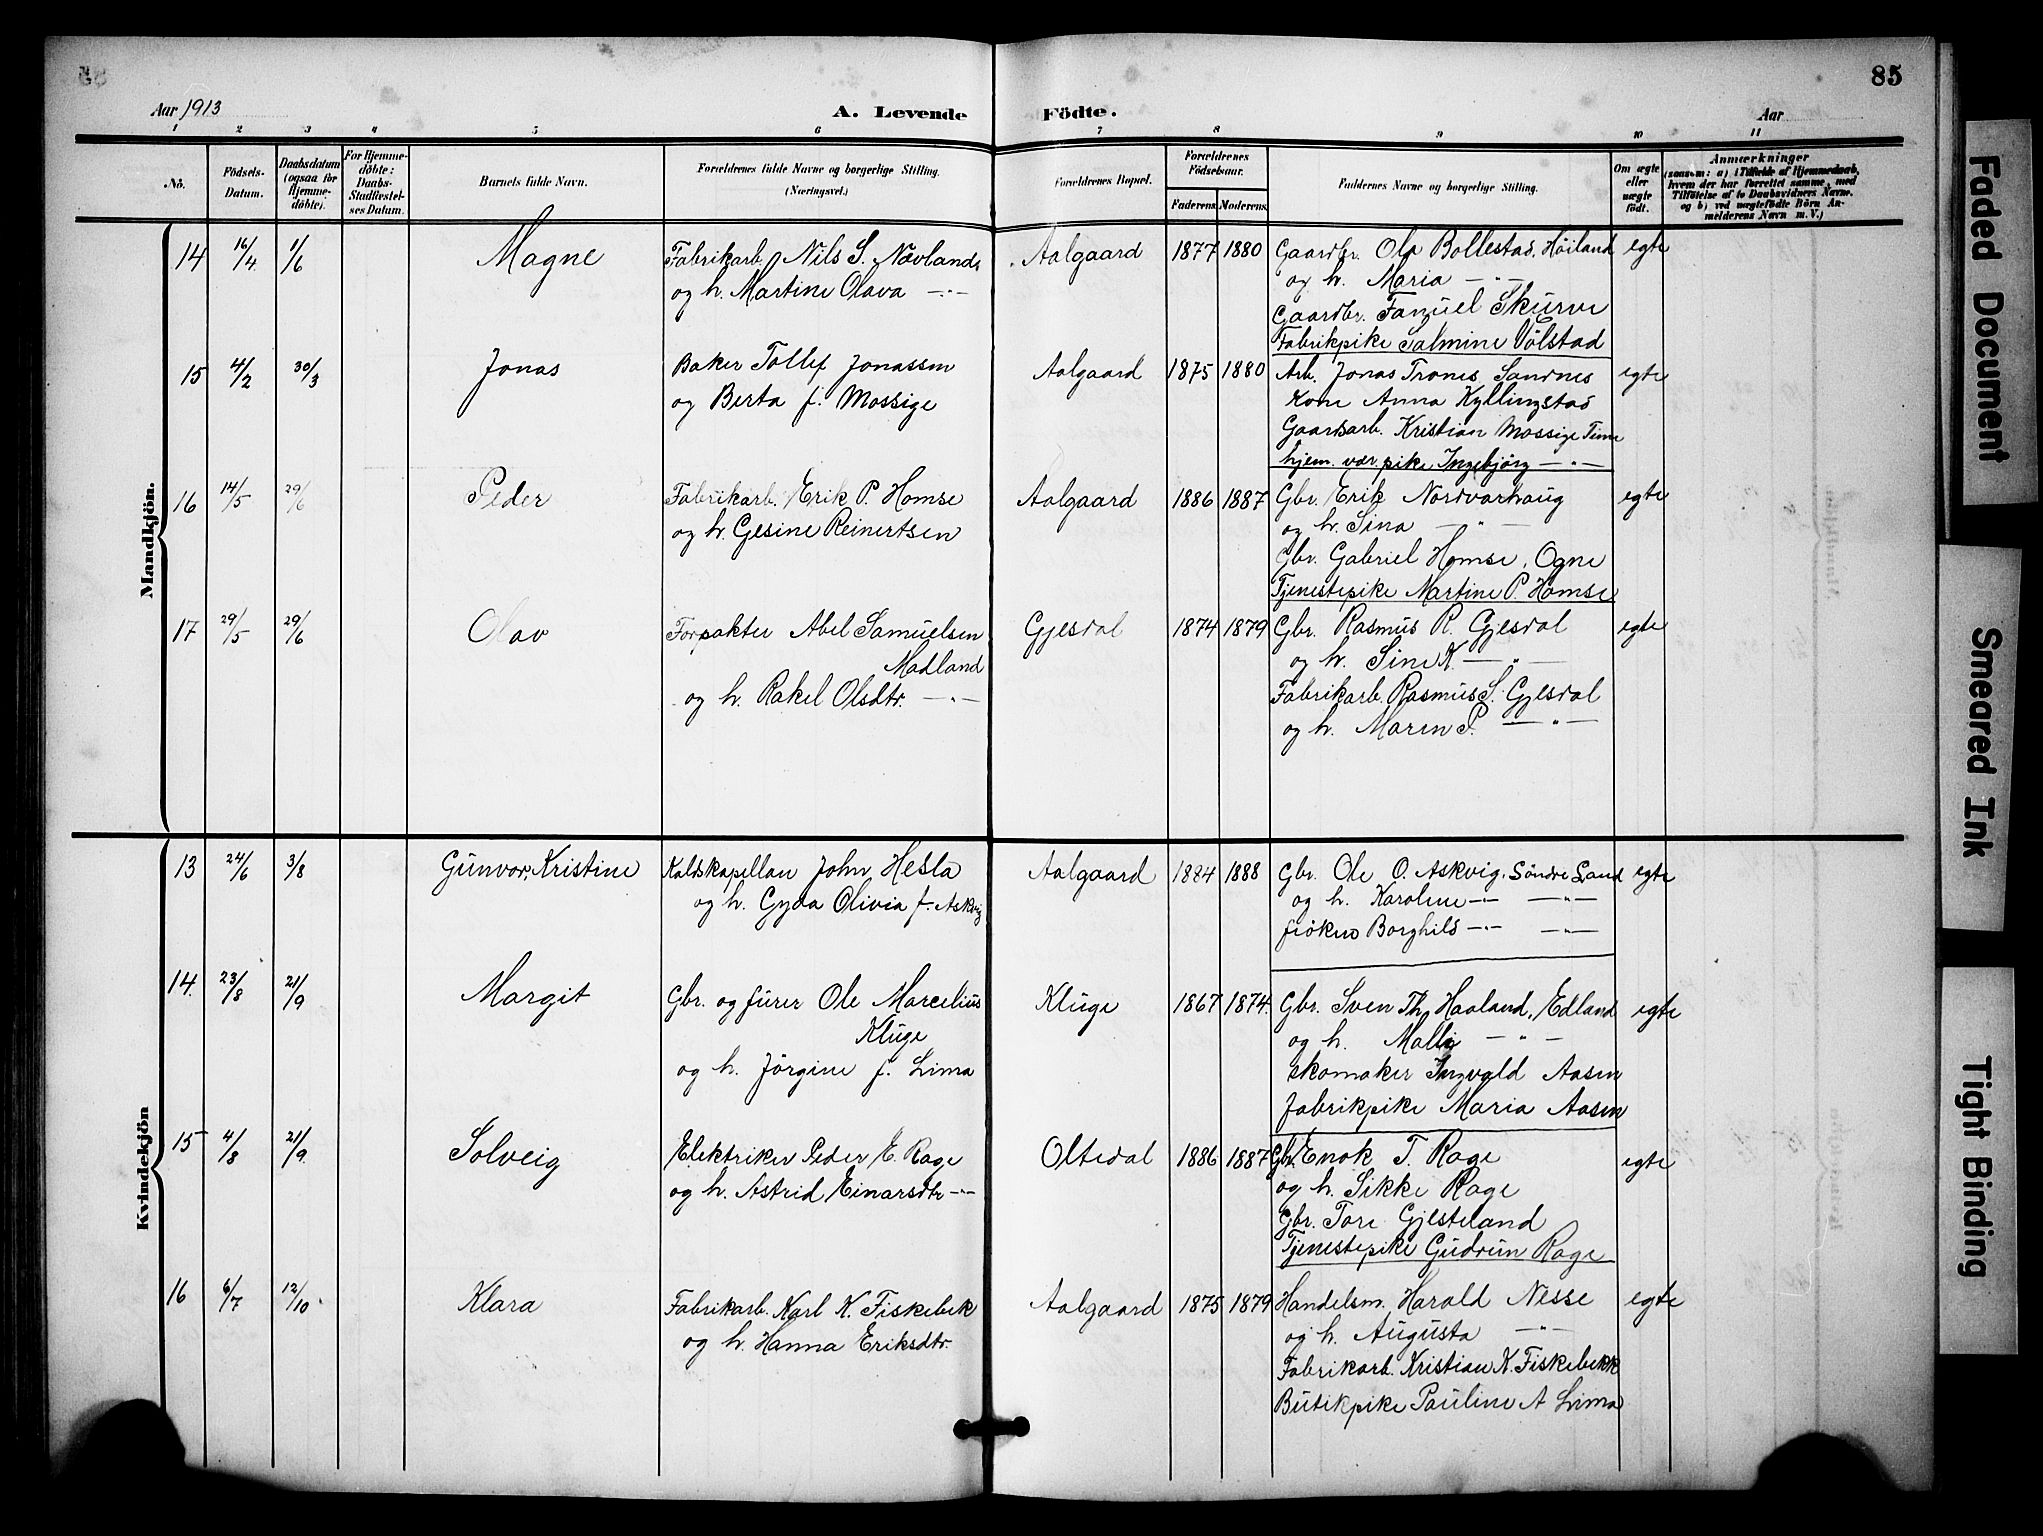 85
Aar 1913
A. Levende Födte.
Aar
1 2 3 4 5 6 7 8 9 10 11
No.
Födsels-
Datum.
Daabsdatum
(ogsaa for
Hjemme-
döbte).
For Hjemme-
döbte:
Daabs-
Stadfæstel-
ses Datum.
Barnets fulde Navn.
Forældrenes fulde Navne og borgerlige Stilling.
(Næringsvei.)
Forældrenes Bopæl.
Forældrenes
Födselsaar.
Faderens.
Moderens.
Faddernes Navne og borgerlige Stilling.
Om ægte
eller
uægte
födt.
Anmærkninger
(saasom: a) i Tilfælde af Hjemmedaab,
hvem der har forrettet samme, med
Tilföielse af to Daabsvidners Navne,
og b) ved uægtefödte Börn An-
melderens Navn m. V.)
Mandkjön.
14 16/4 1/6 Magne Fabrikarb. Nils S. Nævland Aalgaard 1877 1880 Gaardbr. Ola Bollestad, Höiland egte
og h. Martine Olava —"— og h. Maria —"—
Gaardbr. Fanuel Skurve
Fabrikpike Salmine Völstad
15 4/2 30/3 Jonas Baker Tollef Jonassen Aalgaard 1875 1880 Arb. Jonas Trones Sandnes egte
og Berta f. Mossige kone Anna Kyllingstad
Gaardarb. Kristian Mossige Time
hjem. vær. pike Ingebjörg —"—
16 14/5 29/6 Peder Fabrikarb. Erik P. Homse Aalgaard 1886 1887 Gbr. Erik Nordvarhaug egte
og h. Gesine Reinertsen og h. Sina —"—
Gbr. Gabriel Homse, Ogne
Tjenestepike Martine P. Homse
17 29/5 29/6 Olav Forpakter Abel Samuelsen Gjesdal 1874 1879 Gbr. Rasmus R. Gjesdal egte
Madland og h. Sine K. —"—
og h. Rakel Olsdtr. —"— Fabrikarb. Rasmus S. Gjesdal
og h. Maren P. —"—
Kvindekjön
13 24/6 3/8 Gunvor Kristine Kaldskapellan John Hesla Aalgaard 1884 1888 Gbr. Ole O. Askvig, Söndre Land egte
og h. Gyda Olivia f. Askvig og h. Karoline —"— —"—
fröken Borghild —"— —"—
14. 23/8 21/9 Margit Gbr. og furer Ole Marcelius Kluge 1867 1874. Gbr. Sven Th. Haaland, Edland egte
Kluge og h. Malli —"—
og h. Jörgine f. Lima skomaker Ingvald Aasen
fabrikpike Maria Aasen
15 4/8 21/9 Solveig Elektriker Peder E. Rage Oltedal 1886 1887 Gbr. Enok T. Rage egte
og h. Astrid Einarsdtr —"— og h. Sikke Rage
Gbr. Tore Gjesteland
Tjenestepike Gudrun Rage
16 6/7 12/10 Klara Fabrikarb. Karl K. Fiskebek Aalgaard 1875 1879 Handelsm. Harald Nesse egte
og h. Hanna Eriksdtr. og h. Augusta —"—
Fabrikarb. Kristian K. Fiskebekk
Butikpike Pauline A Lima
Faded Document
Smeared Ink
Tight Binding